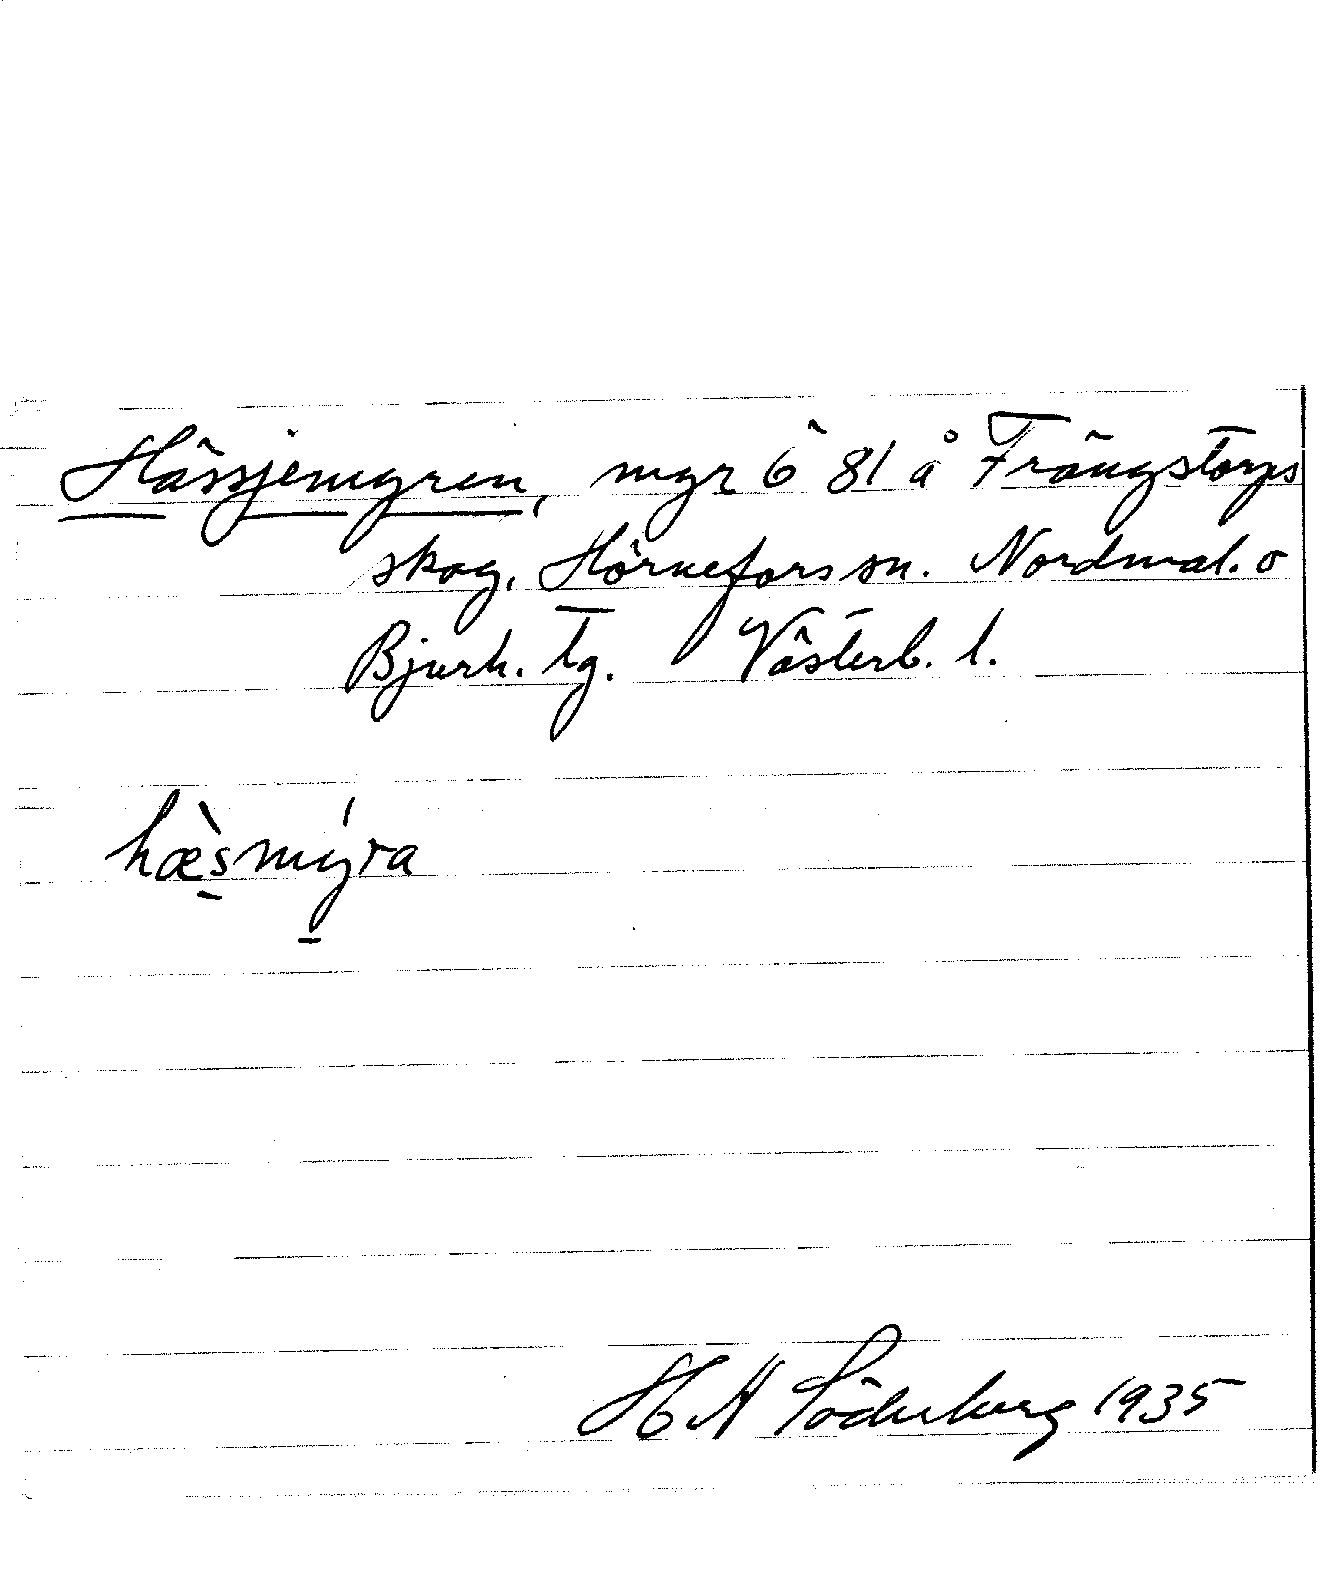 Hässjemyren, myr ö 81 å Frängstorps
skog, Hörnefors sn. Nordmal. o
Bjurh. tg. Västerb. l.
hæ̀smýra
H A Söderberg 1935